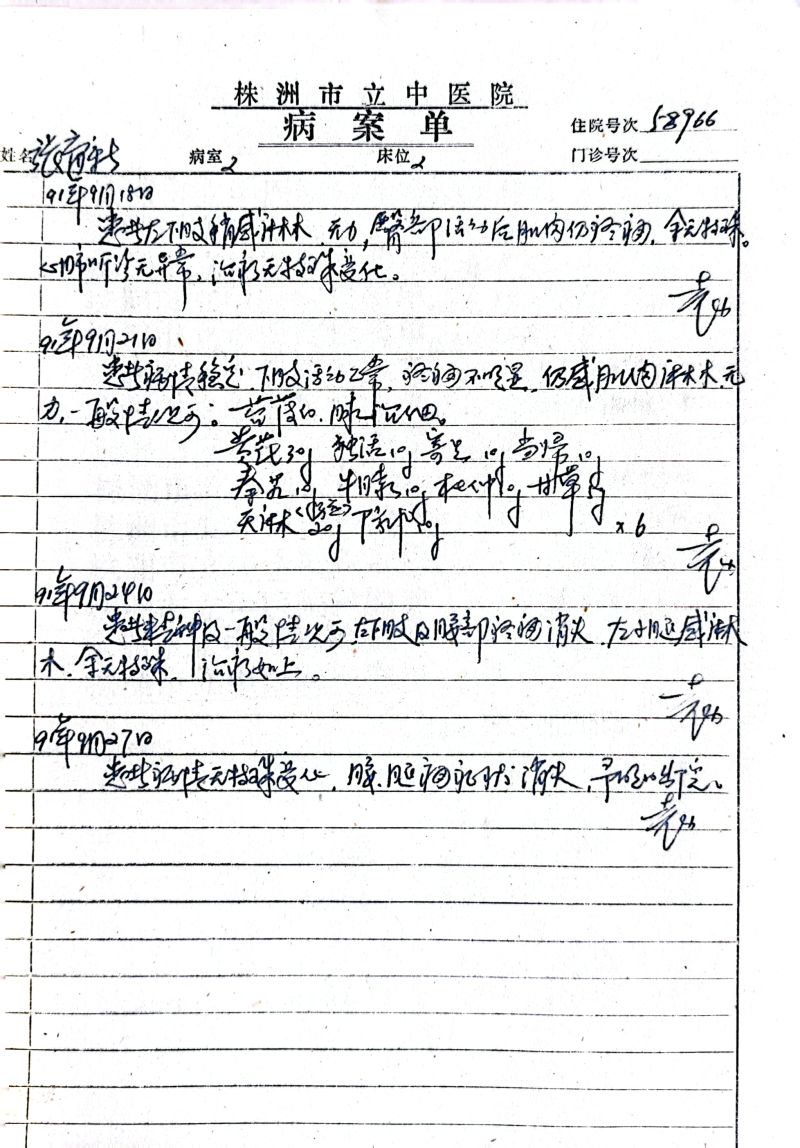 株洲市立中医院
病案单
住院号次 58966
姓名 病室 2 床位 2 门诊号次
91年9月18日
患者左下肢稍感麻木、无力，臀部活动后肌肉仍疼痛，余无特殊。
心肺听诊无异常，治疗无特殊变化。
袁
91年9月21日
患者病情稳定，下肢活动正常，疼痛不明显，仍感肌肉麻木无
力，一般情况可。苔薄白、脉沉细。
黄芪30g 独活10g 寄生10g 当归10g
秦艽10g 牛膝10g 杜仲10g 甘草5g
天麻 20g ×6
袁
91年9月24日
患者精神及一般情况可，左下肢及腰部疼痛消失，左小腿感麻
木，余无特殊，治疗如上。
袁
91年9月27日
患者病情无特殊变化，腰、腿痛症状消失，出院。
袁